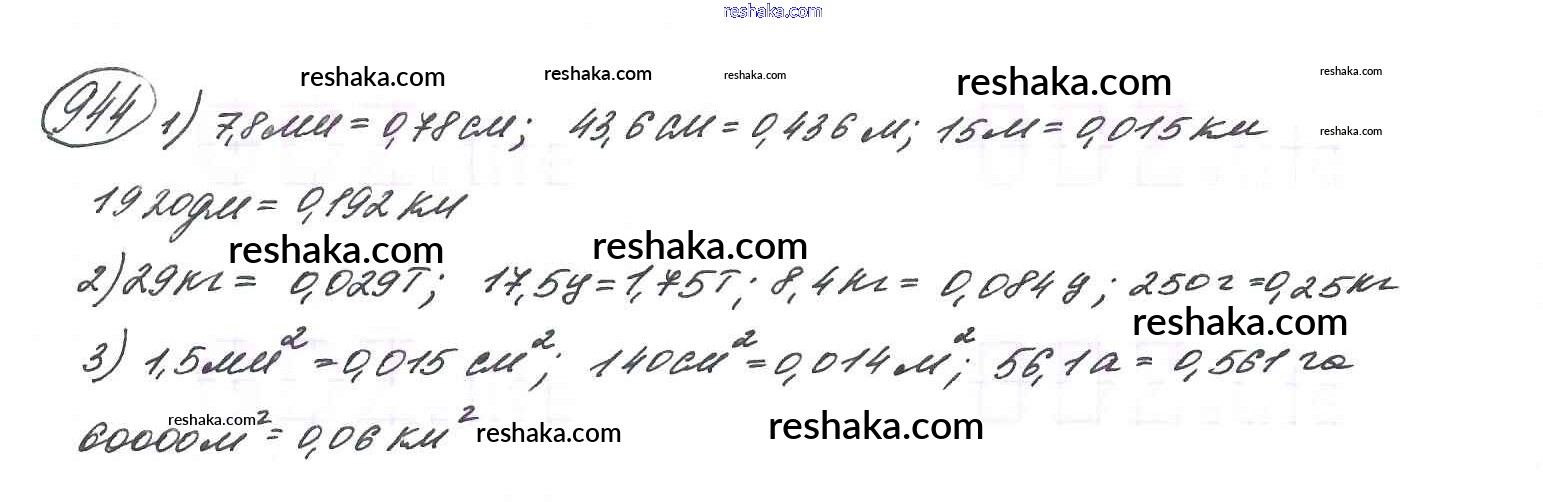 reshaka.com
reshaka.com reshaka.com reshaka.com reshaka.com reshaka.com
944 1) 7,8мм = 0,78см; 43,6см = 0,436м; 15м = 0,015км
reshaka.com
1920дм = 0,192км
reshaka.com reshaka.com
2) 29кг = 0,029т; 17,5ц = 1,75т; 8,4кг = 0,084ц; 250г = 0,25кг
reshaka.com
3) 1,5мм² = 0,015см²; 140см² = 0,014м²; 56,1а = 0,561га
reshaka.com reshaka.com reshaka.com
60000м² = 0,06км²